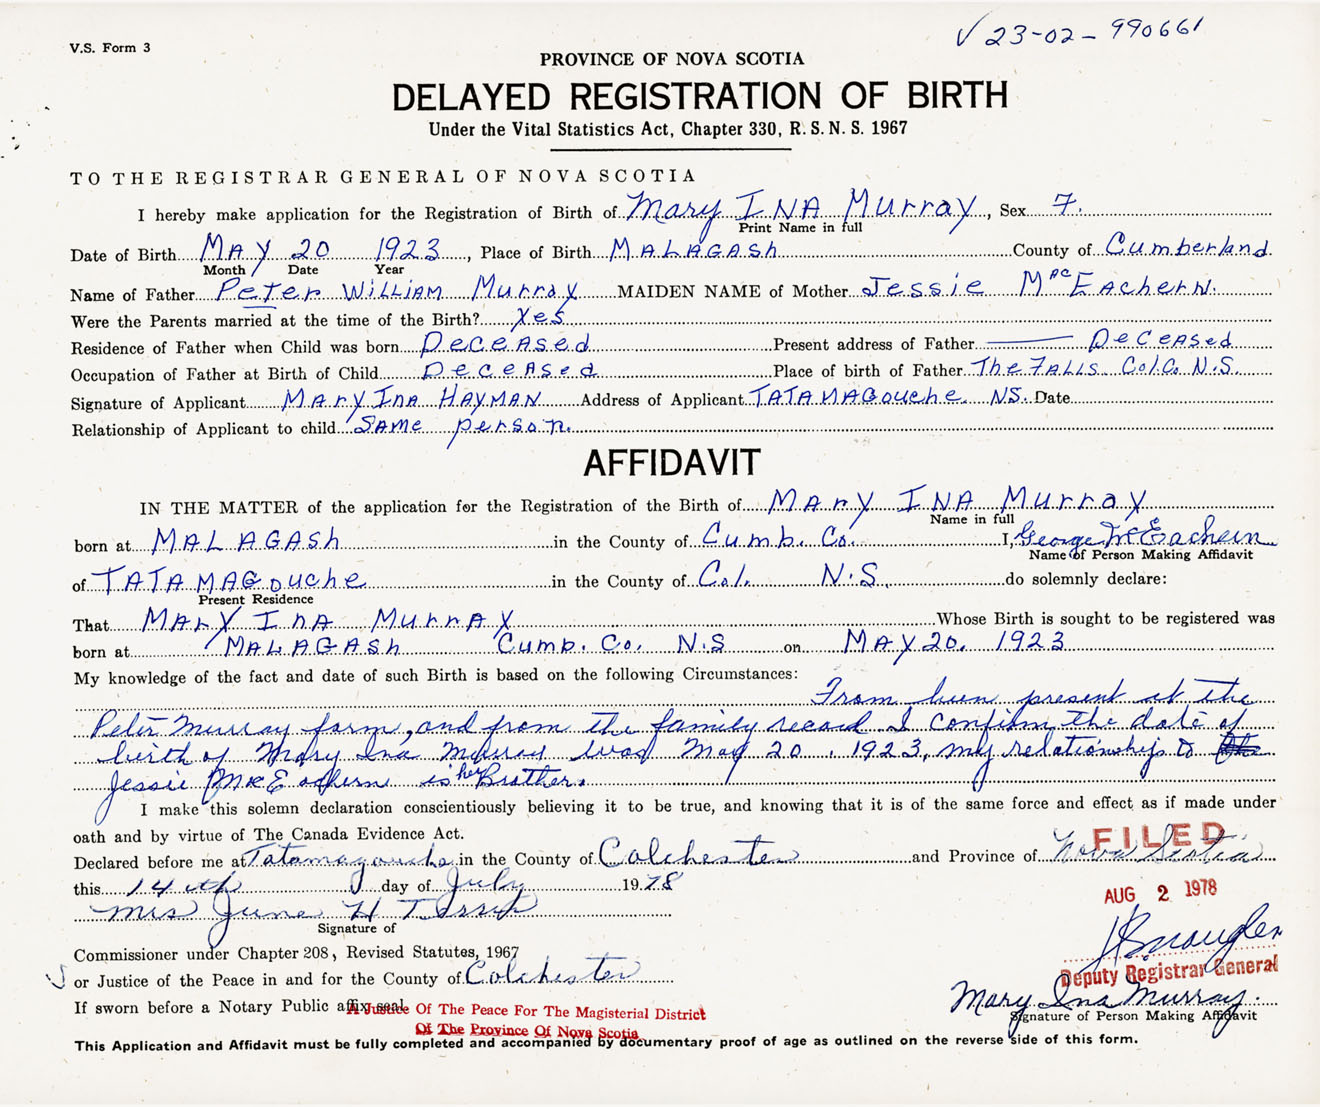 V.S. Form 3
√ 23-02-990661
PROVINCE OF NOVA SCOTIA
DELAYED REGISTRATION OF BIRTH
Under the Vital Statistics Act, Chapter 330, R.S.N.S. 1967
TO THE REGISTRAR GENERAL OF NOVA SCOTIA
I hereby make application for the Registration of Birth of Mary INA Murray, Sex F.
Print Name in full
Date of Birth MAY 20 1923, Place of Birth MALAGASh County of Cumberland.
Month Date Year
Name of Father Peter WILLIAM Murray MAIDEN NAME of Mother Jessie MacEAchern.
Were the Parents married at the time of the Birth? Yes
Residence of Father when Child was born DeceASed Present address of Father DeceASed
Occupation of Father at Birth of Child DeceASed Place of birth of Father The FALLS Col.Co. N.S.
Signature of Applicant MAry InA HAYMAN Address of Applicant TATAMAGouche. NS. Date
Relationship of Applicant to child SAMe person.
AFFIDAVIT
IN THE MATTER of the application for the Registration of the Birth of MAry INA Murray
Name in full
born at MALAGASh in the County of Cumb. Co. I, George McEachern
Name of Person Making Affidavit
of TATAMAGouche in the County of Col. N.S. do solemnly declare:
Present Residence
That MAry InA MurrAy Whose Birth is sought to be registered was
born at MALAGASh Cumb. Co. N.S on MAY 20. 1923
My knowledge of the fact and date of such Birth is based on the following Circumstances:
From been present at the
Peter Murray farm, and from the family record I confirm the date of
birth of Mary Ina Murray was May 20. 1923, my relationship to
Jessie McEachern is her Brother.
I make this solemn declaration conscientiously believing it to be true, and knowing that it is of the same force and effect as if made under
oath and by virtue of The Canada Evidence Act.
Declared before me at Tatamagouche in the County of Colchester and Province of Nova Scotia
FILED
this 14th day of July 1978
AUG 2 1978
Mrs June H
Signature of
Commissioner under Chapter 208, Revised Statutes, 1967
Deputy Registrar General
or Justice of the Peace in and for the County of Colchester
Mary Ina Murray.
If sworn before a Notary Public affix seal
A Justice Of The Peace For The Magisterial District
Signature of Person Making Affidavit
Of The Province Of Nova Scotia
This Application and Affidavit must be fully completed and accompanied by documentary proof of age as outlined on the reverse side of this form.